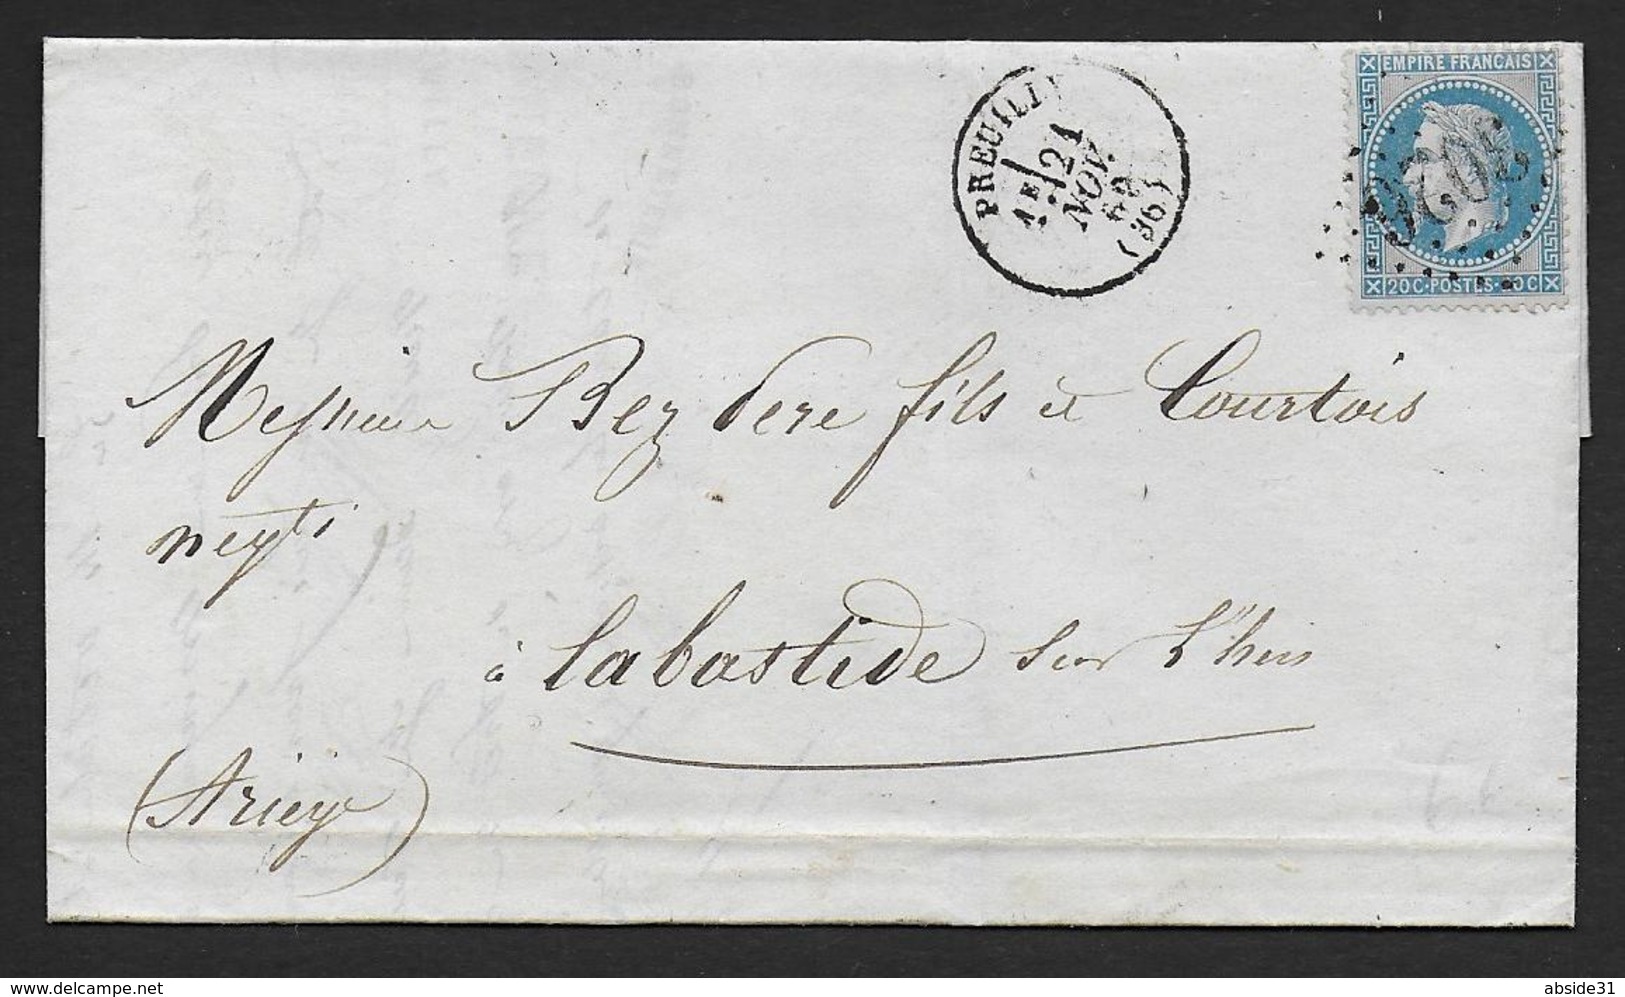 EMPIRE FRANCAIS
PREUILLY
1E
21
NOV.
69
(36)
3026
20C·POSTES·20C
Messieurs Bez Père fils et Courtois
negts
à Labastide sur L'hers
(Ariège)
delcampe.net
abside31